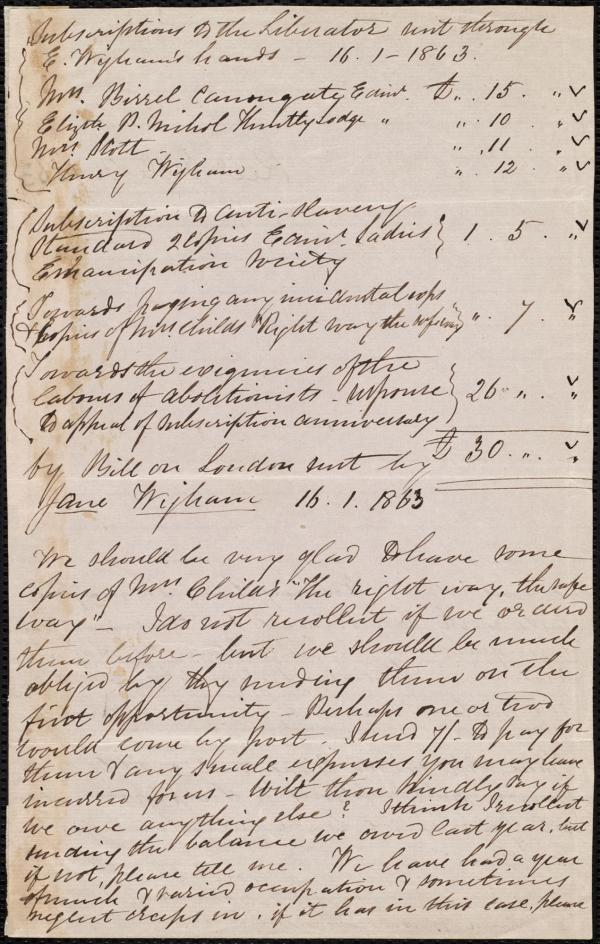 Subscriptions to the Liberator sent through
E. Wigham's hands - 16.1-1863.
Mrs. Birrel Canongate Edinr. £ ,, . 15 . ,,
Elizth P. Nichol Huntly Lodge ,, ,, . 10 . ,,
Mrs Stott - ,, . 11 . ,,
Henry Wigham ,, . 12 . ,,
Subscription to Anti-Slavery
Standard 2 copies Edinr. Ladies' 1 . 5 . ,,
Emancipation Society
Towards paying any incidental exps
& copies of Mrs. Childs "Right way the safe way" ,, . 7 . ,,
Towards the exigencies of the
labours of abolitionists - response 26 . ,, . ,,
to appeal of subscription anniversary
£ 30 . ,, . ,,
by Bill on London sent by
Jane Wigham 16.1.1863
We should be very glad to have some
copies of Mrs. Child's "The right way, the safe
way" - I do not recollect if we ordered
them before - but we should be much
obliged by thy sending them on the
first opportunity - Perhaps one or two
would come by post. I send 7/- to pay for
them & any small expenses you may have
incurred for us - Wilt thou kindly say if
we owe anything else? I think I recollect
sending the balance we owed last year, but
if not, please tell me. We have had a year
of much & varied occupation & sometimes
neglect creeps in, if it has in this case, please